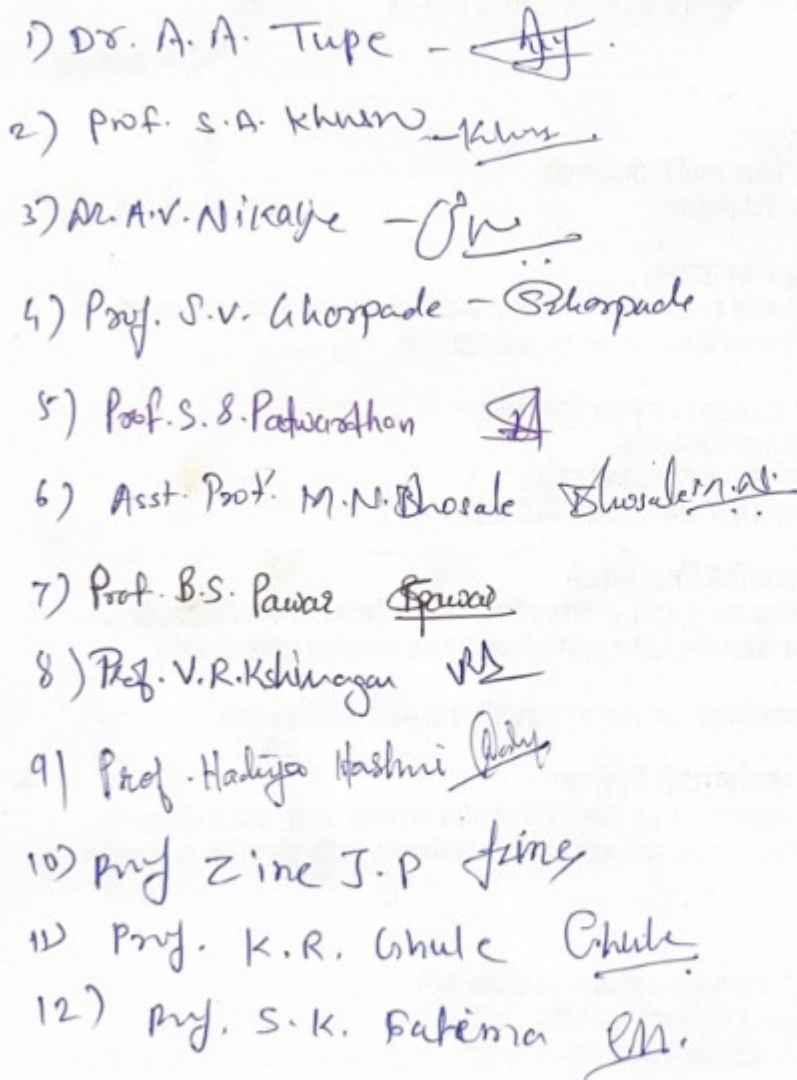 1) Dr. A. A. Tupe -
2) Prof. S.A. Khusro -
3) Dr. A.V. Nikalje -
4) Prof. S.V. Ghorpade - Ghorpade
5) Prof. S.S. Patwardhan
6) Asst. Prof. M.N. Bhosale Bhosale M.N.
7) Prof. B.S. Pawar Bpawar
8) Prof. V.R. Kshirsagar
9) Prof. Hadiya Hashmi
10) Prof Zine J.P Jzine
11) Prof. K.R. Ghule Ghule
12) Prof. S.K. Fatema